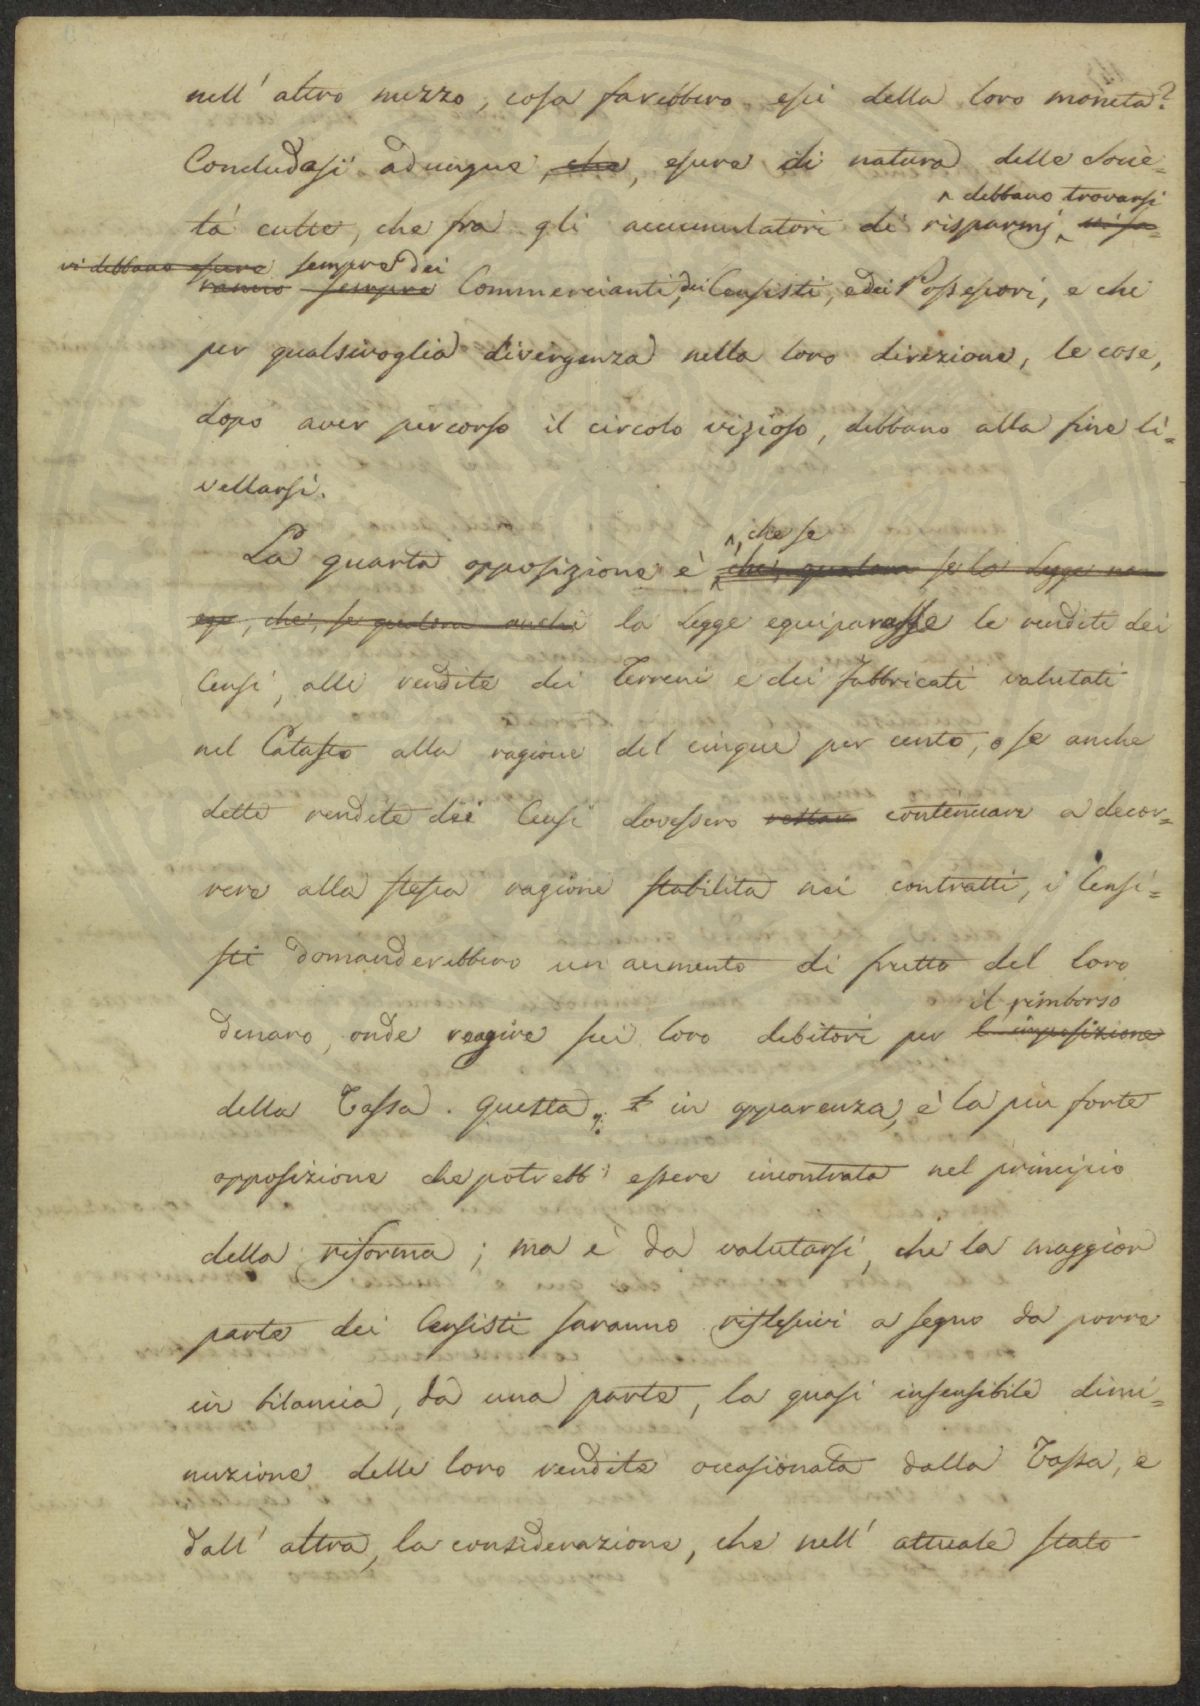 nell' altro mezzo, cosa farebbero essi della loro moneta?
Concludasi adunque, che, essere di natura delle Socie-
^ debbano trovarsi
tà culte, che fra gli accumulatori di risparmj, vi sa-
vi debbano essere sempre dei
ranno sempre Commercianti, dei Censisti, e dei Possessori, e che
per qualsivoglia divergenza nella loro direzione, le cose,
dopo aver percorso il circolo vizioso, debbano alla fine li-
vellarsi.
^, che se
La quarta opposizione è che, qualora se la Legge non
che, se qualora anche la Legge equiparasse le rendite dei
Censi, alle rendite dei Terreni e dei Fabbricati valutati
nel Catasto alla ragione del cinque per cento, o se anche
dette rendite dei Censi dovessero restar continuare a decor-
rere alla stessa ragione stabilita nei contratti, i Censi-
sti domanderebbero un aumento di frutto del loro
il rimborso
denaro, onde reagire sui loro debitori per l'imposizione
della Tassa. Questa, in apparenza, è la più forte
opposizione che potrebb' essere incontrata nel principio
della riforma; ma è da valutarsi, che la maggior
parte dei Censisti saranno riflessivi a segno da porre
in bilancia, da una parte, la quasi insensibile dimi-
nuzione delle loro rendite occasionata dalla Tassa, e
dall' altra, la considerazione, che nell' attuale stato